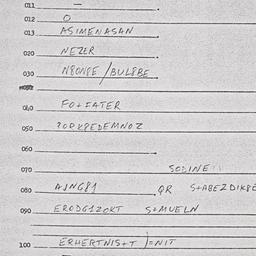 011 —
012 O
013 ASIMENASAN
020 NEZER
030 N8ONPE/BULPBE
040 FO+IATER
050 ?ORKPEDEMNOZ
060
070 SODINE
080 AJNG81 QR S+ABEZDIKPE
090 ERODG1ZOKT S+MUELN
100 ERHERTNIS+T )=NIT